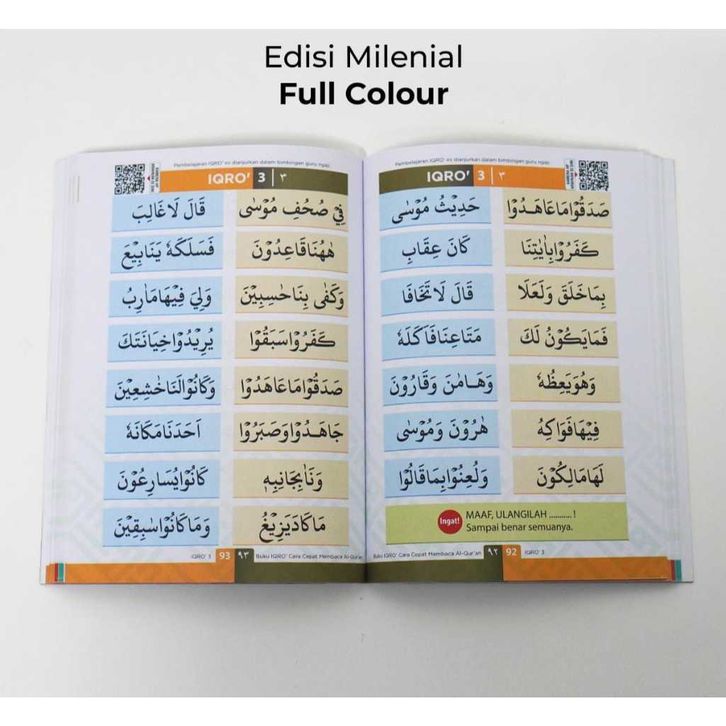 Edisi Milenial
Full Colour
Pembelajaran IQRO' ini dianjurkan dalam bimbingan guru ngaji
IQRO' 3 | ٣
صَدَقُوْامَاعَاهَدُوْا
حَدِيْثُ مُوْسٰى
كَفَرُوْابِاٰيٰتِنَا
كَانَ عِقَابِ
بِمَاخَلَقَ وَلَعَلَا
قَالَ لَاتَخَافَا
فَمَايَكُوْنُ لَكَ
مَتَاعِنَافَاَكَلَهٗ
وَهُوَيَعِظُهٗ
وَهَامٰنَ وَقَارُوْنَ
فِيْهَافَوَاكِهُ
هٰرُوْنَ وَمُوْسٰى
لَهَامَالِكُوْنَ
وَلُعِنُوْابِمَاقَالُوْا
Ingat!
MAAF, ULANGILAH .......... !
Sampai benar semuanya.
Buku IQRO' Cara Cepat Membaca Al-Qur'an ٩٢ 92 IQRO' 3
Pembelajaran IQRO' ini dianjurkan dalam bimbingan guru ngaji
IQRO' 3 | ٣
فِيْ صُحُفِ مُوْسٰى
قَالَ لَاغَالِبَ
هٰهُنَاقَاعِدُوْنَ
فَسَلَكَهٗ يَنَابِيْعَ
وَكَفٰى بِنَاحٰسِبِيْنَ
وَلِيَ فِيْهَامَاٰرِبُ
كَفَرُوْاسَبَقُوْا
يُرِيْدُوْاخِيَانَتَكَ
صَدَقُوْامَاعَاهَدُوْا
وَكَانُوْالَنَاخٰشِعِيْنَ
جَاهَدُوْاوَصَبَرُوْا
اَحَدَنَامَكَانَهٗ
وَنَاٰبِجَانِبِهٖ
كَانُوْايُسَارِعُوْنَ
مَاكَادَيَزِيْغُ
وَمَاكَانُوْاسٰبِقِيْنَ
IQRO' 3 93 ٩٣ Buku IQRO' Cara Cepat Membaca Al-Qur'an